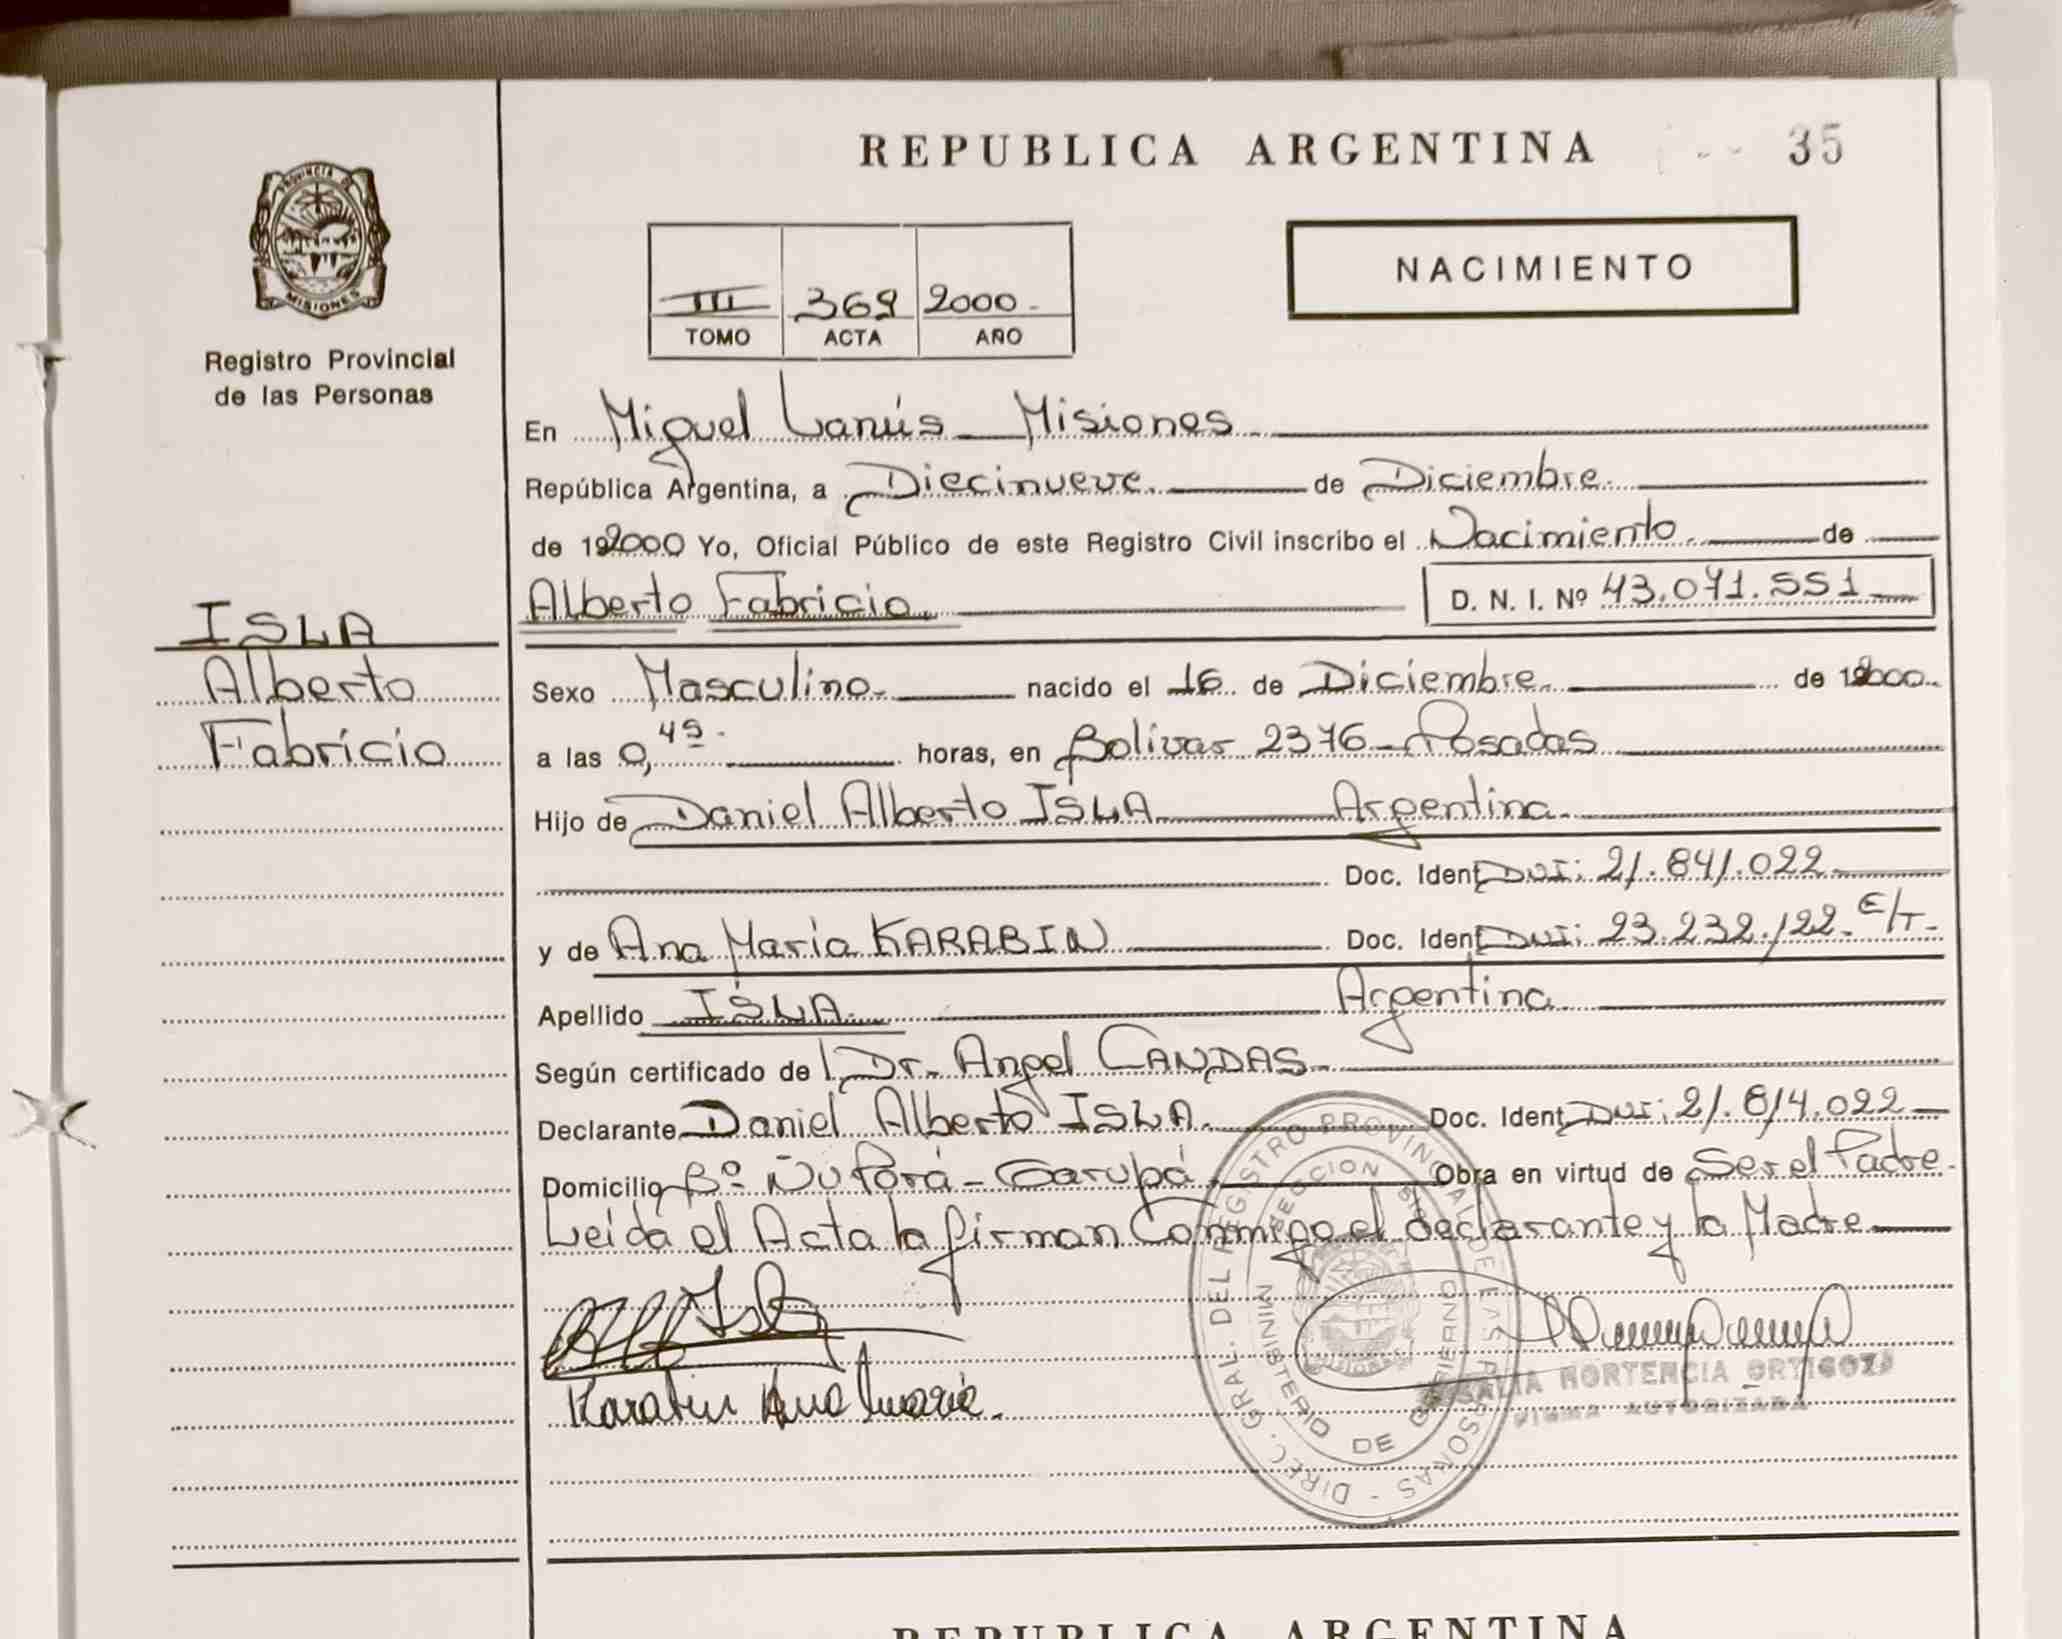 REPUBLICA ARGENTINA
35
PROVINCIA DE
MISIONES
Registro Provincial
de las Personas
III 369 2000.-
TOMO ACTA AÑO
NACIMIENTO
En Miguel Lanús Misiones
República Argentina, a Diecinueve de Diciembre
de 192000 Yo, Oficial Público de este Registro Civil inscribo el Nacimiento de
Alberto Fabricio. D. N. I. Nº 43.071.551
ISLA
Alberto
Fabricio
Sexo Masculino nacido el 16 de Diciembre de 192000
a las 0,45 horas, en Bolivar 2376 - Posadas
Hijo de Daniel Alberto ISLA Argentina
Doc. Ident DNI: 21.841.022
y de Ana María KARABIN Doc. Ident DNI: 23.232.122 E/T
Apellido ISLA Argentina
Según certificado de Dr. Angel CANDAS
Declarante Daniel Alberto ISLA. Doc. Ident DNI: 21.814.022
Domicilio Bº Ñu Porá - Garupá Obra en virtud de Ser el Padre
Leída el Acta la firman Conmigo el declarante y la Madre
Isla
Karabin Ana Maria.
DIREC. GRAL. DEL REGISTRO PROVINCIAL DE LAS PERSONAS
MINISTERIO DE GOBIERNO
HORTENCIA ORTIGOZA
FIRMA AUTORIZADA
REPUBLICA ARGENTINA